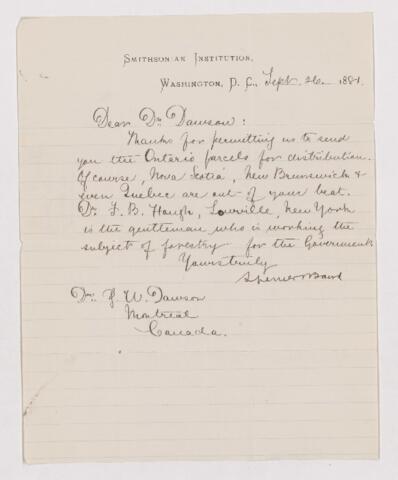 SMITHSONIAN INSTITUTION,
WASHINGTON, D. C., Sept. 26 1881.
Dear Dr. Dawson:
Thanks for permitting us to send
you the Ontario parcels for distribution.
Of course, Nova Scotia, New Brunswick &
even Quebec are out of your beat.
Dr. F. B. Hough, Lowville, New York
is the gentleman who is working the
subject of forestry for the Government.
Yours truly
Spencer F Baird
Dr. J. W. Dawson
Montreal
Canada.